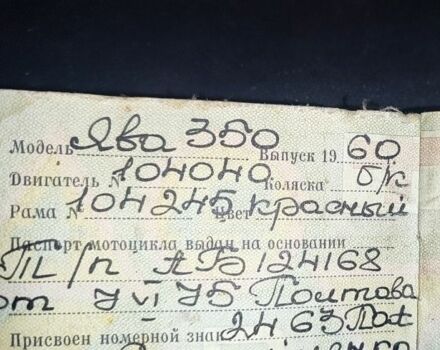 Модель Ява 350 Выпуск 19 60
Двигатель № 104040 Коляска б/к
Рама № 104245 Цвет красный
Паспорт мотоцикла выдан на основании
Т/п АБ 124168
от 7 VI 75 Полтова
Присвоен номерной знак 2463 Пол